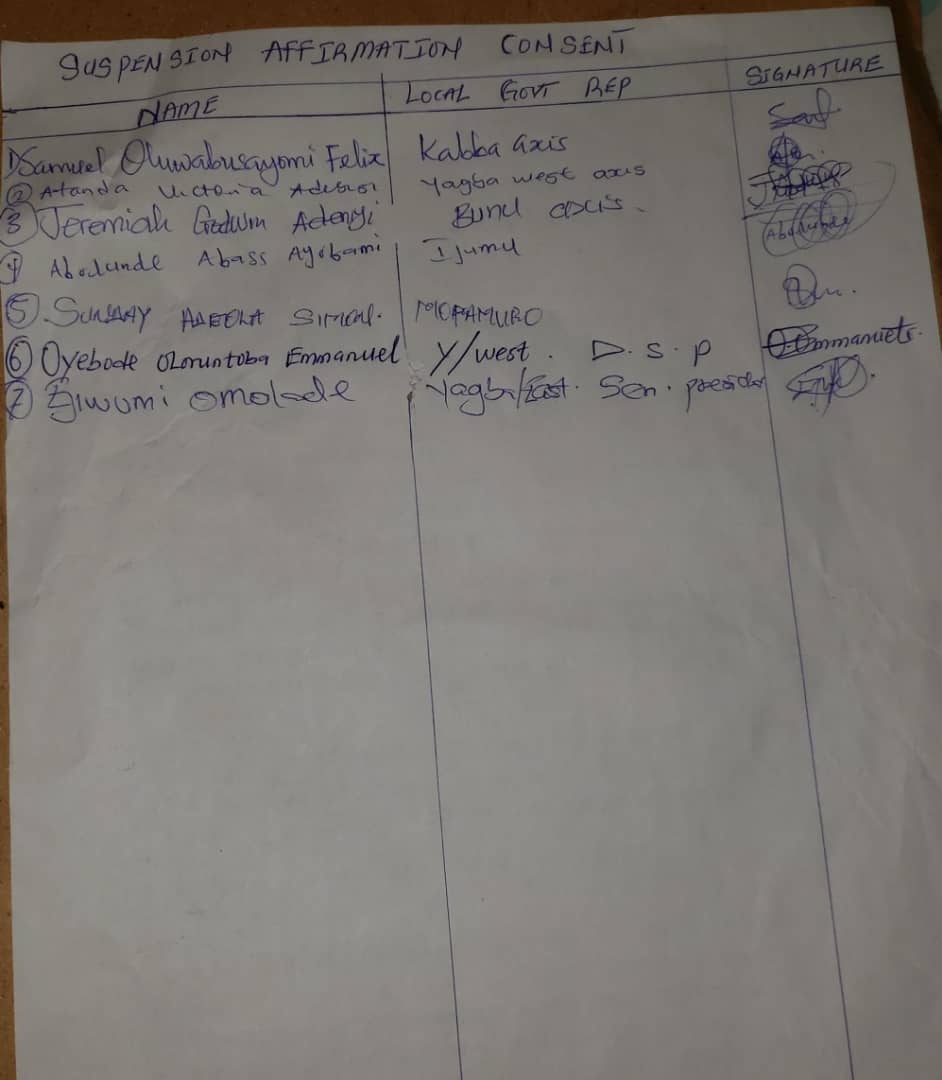 SUSPENSION AFFIRMATION CONSENT
NAME LOCAL GOVT REP SIGNATURE
1) Samuel Oluwabusayomi Felix Kabba axis
2 Atanda Victoria Adebisi Yagba west axis
3 Jeremiah Godwin Adeniyi Bunu axis.
4 Abodunde Abass Ayobami Ijumu
5. SUNDAY ADEOLA SIMON. MOPAMURO
6 Oyebode Oloruntoba Emmanuel Y/west. D.S.P
7 Ejiwumi omolade Yagba/East. Sen. president